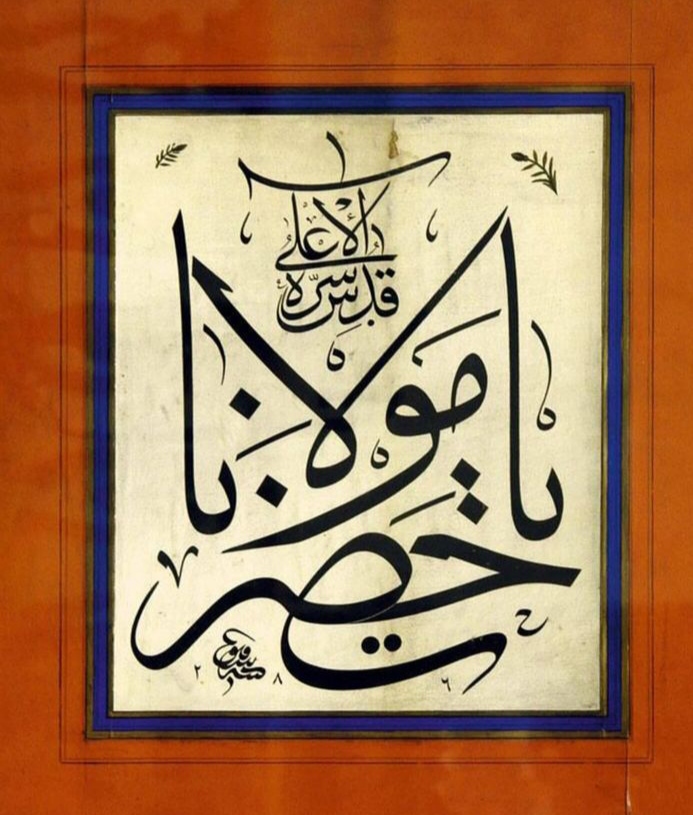 يا حضرت
مولانا
قدّس سرّه
الاعلى